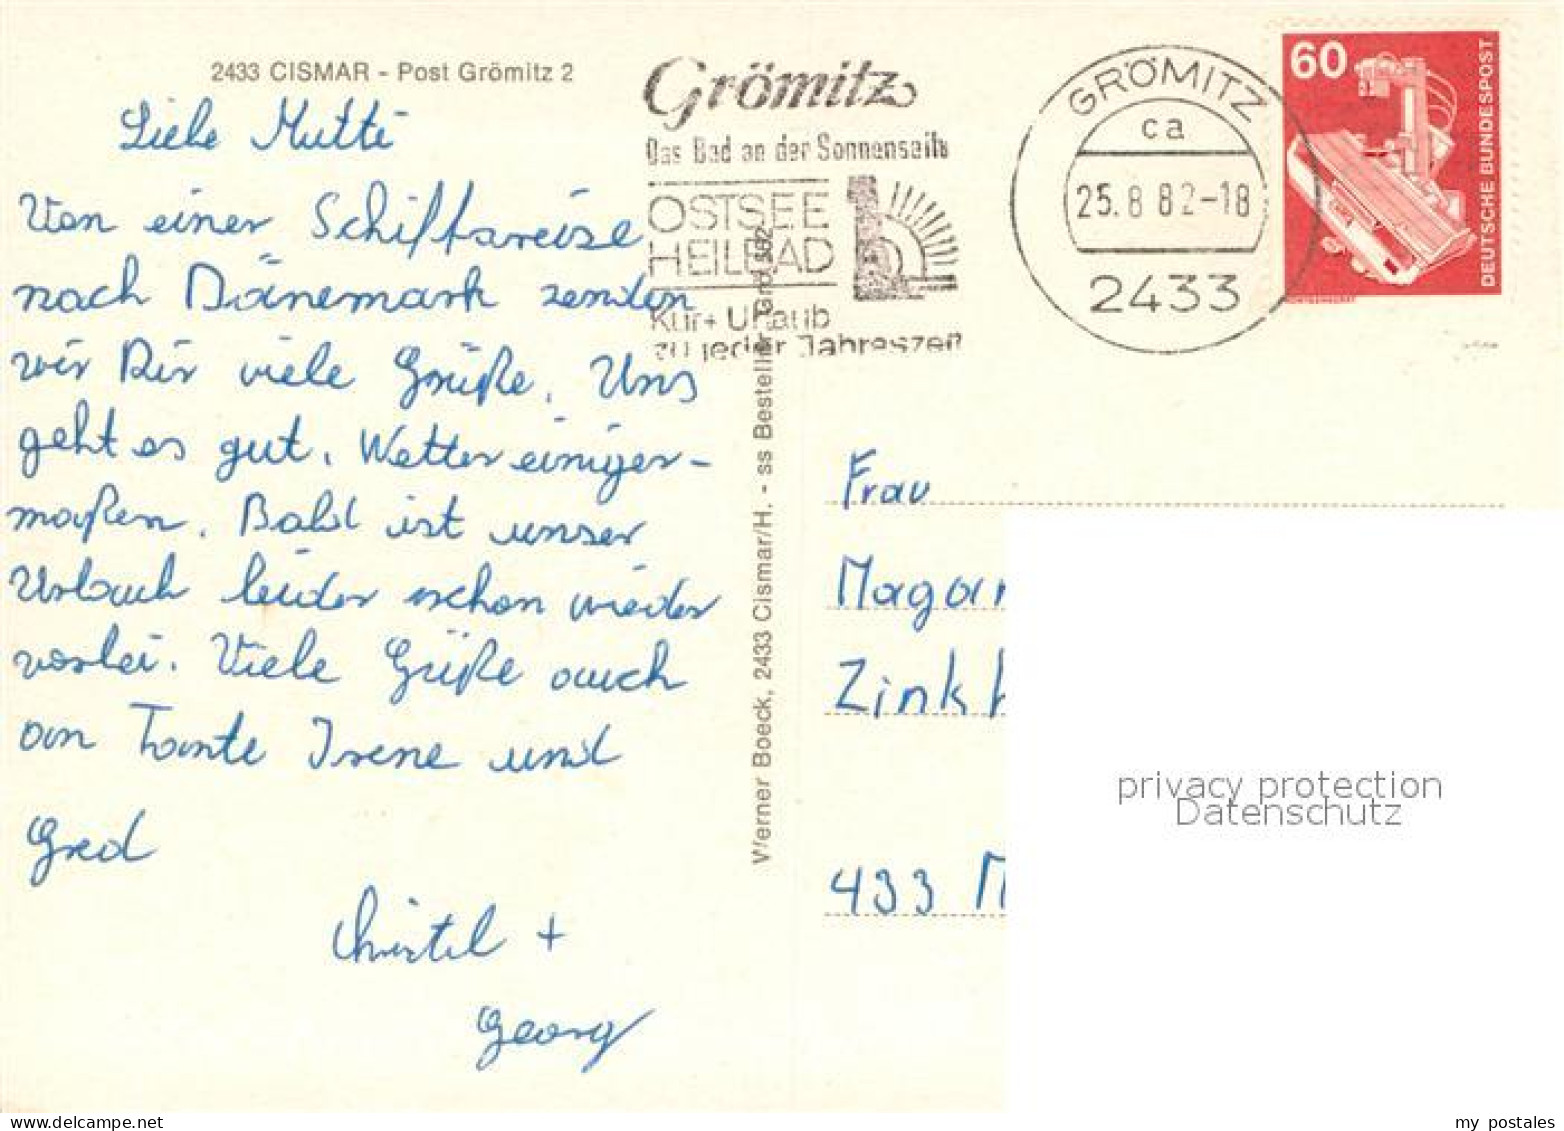 2433 CISMAR - Post Grömitz 2
Grömitz
Das Bad an der Sonnenseite
OSTSEE
HEILBAD
Kur + Urlaub
zu jeder Jahreszeit
GRÖMITZ
ca
25.8.82-18
2433
60
DEUTSCHE BUNDESPOST
Liebe Mutti
Von einer Schiffsreise
nach Dänemark senden
wir Dir viele Grüße. Uns
geht es gut. Wetter einiger-
maßen. Bald ist unser
Urlaub leider schon wieder
vorbei. Viele Grüße auch
an Tante Irene und
Gred
Christel +
Georg
Werner Boeck, 2433 Cismar/H. - ss Bestellnr. Grd
Frau
Magar
Zinkh
433 M
privacy protection
Datenschutz
my postales